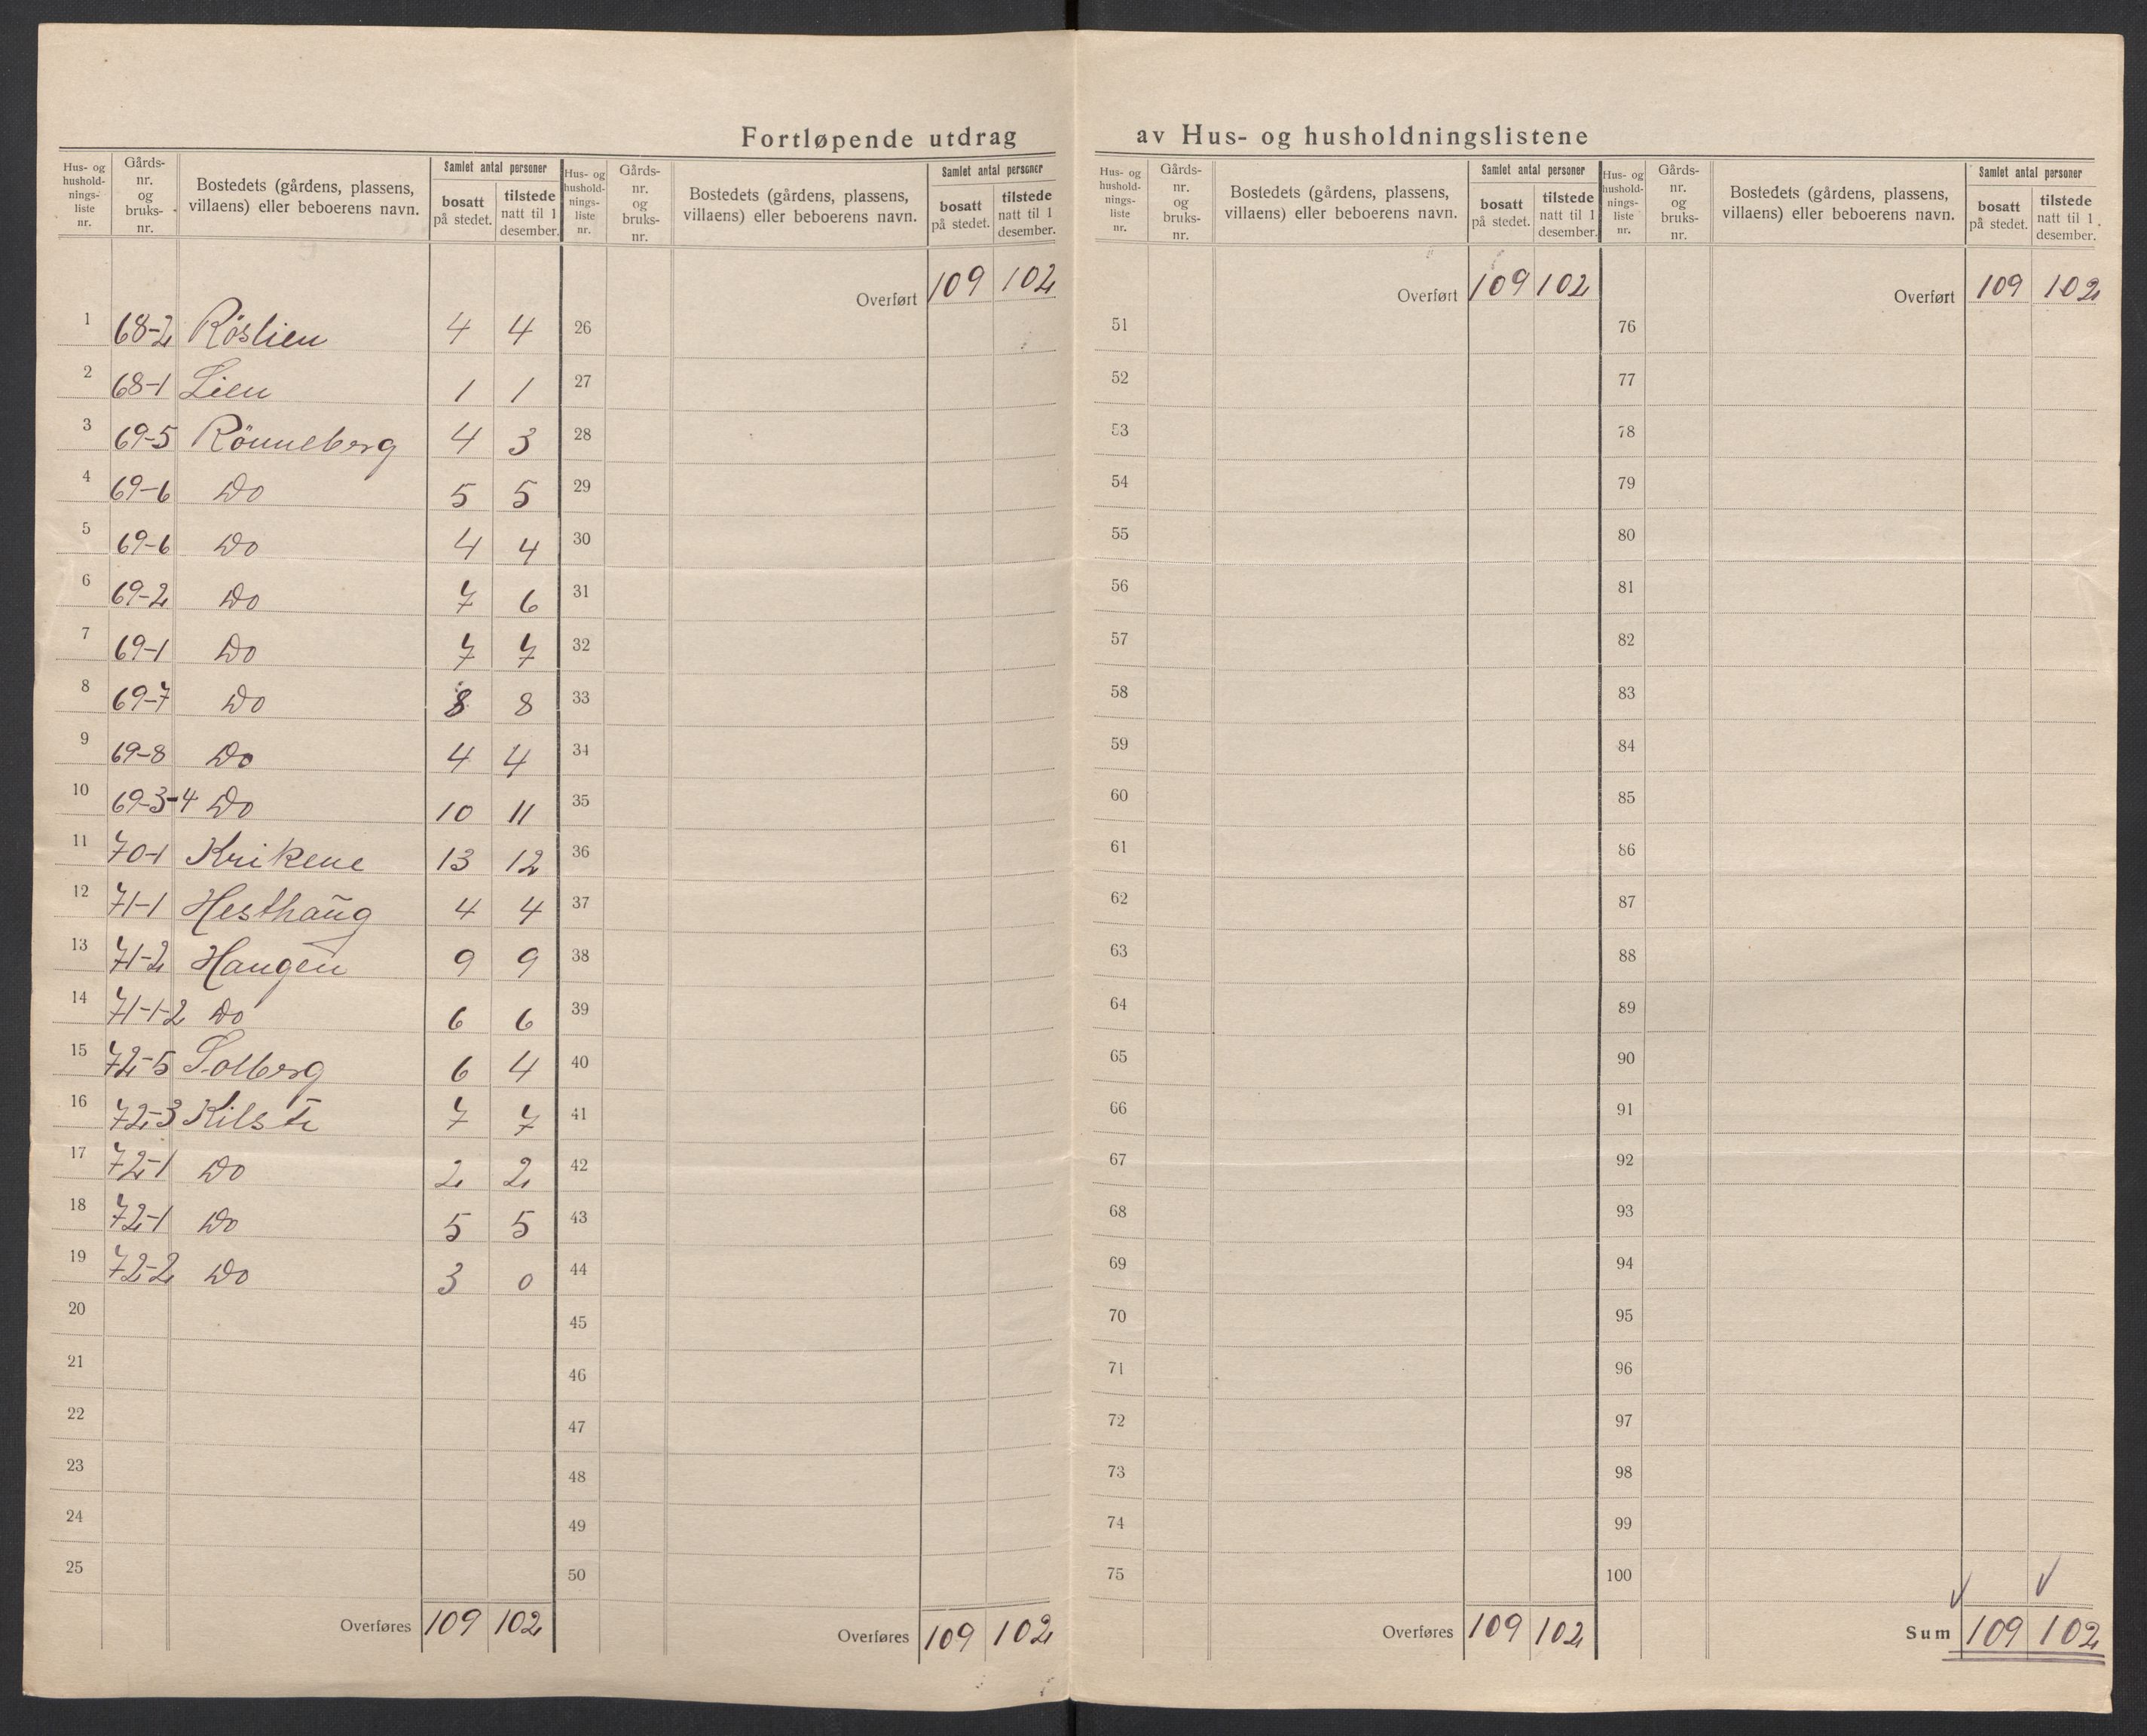 Fortløpende utdrag av Hus- og husholdningslistene
Hus- og hushold- nings- liste nr.
Gårds- nr. og bruks- nr.
Bostedets (gårdens, plassens, villaens) eller beboerens navn.
Samlet antal personer
bosatt på stedet.
tilstede natt til 1 desember.
1 68-2 Röslien 4 4
2 68-1 Lien 1 1
3 69-5 Rönneberg 4 3
4 69-6 Do 5 5
5 69-6 Do 4 4
6 69-2 Do 7 6
7 69-1 Do 7 7
8 69-7 Do 8 8
9 69-8 Do 4 4
10 69-3-4 Do 10 11
11 70-1 Krikene 13 12
12 71-1 Hesthaug 4 4
13 71-2 Haugen 9 9
14 71-1-2 Do 6 6
15 72-5 Solberg 6 4
16 72-3 Kilsti 7 7
17 72-1 Do 2 2
18 72-1 Do 5 5
19 72-2 Do 3 0
20
21
22
23
24
25
Overføres 109 102
Hus- og hushold- nings- liste nr.
Gårds- nr. og bruks- nr.
Bostedets (gårdens, plassens, villaens) eller beboerens navn.
Samlet antal personer
bosatt på stedet.
tilstede natt til 1 desember.
Overført 109 102
26
27
28
29
30
31
32
33
34
35
36
37
38
39
40
41
42
43
44
45
46
47
48
49
50
Overføres 109 102
Hus- og hushold- nings- liste nr.
Gårds- nr. og bruks- nr.
Bostedets (gårdens, plassens, villaens) eller beboerens navn.
Samlet antal personer
bosatt på stedet.
tilstede natt til 1 desember.
Overført 109 102
51
52
53
54
55
56
57
58
59
60
61
62
63
64
65
66
67
68
69
70
71
72
73
74
75
Overføres 109 102
Hus- og hushold- nings- liste nr.
Gårds- nr. og bruks- nr.
Bostedets (gårdens, plassens, villaens) eller beboerens navn.
Samlet antal personer
bosatt på stedet.
tilstede natt til 1 desember.
Overført 109 102
76
77
78
79
80
81
82
83
84
85
86
87
88
89
90
91
92
93
94
95
96
97
98
99
100
Sum 109 102